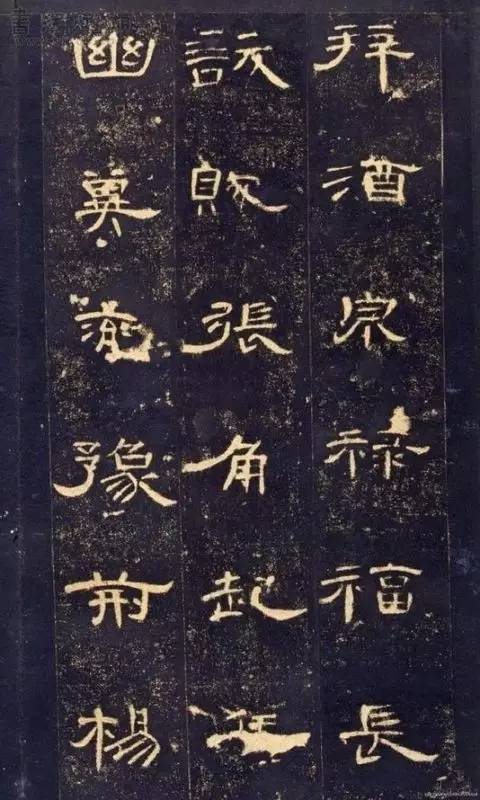 拜酒泉禄福長
訞賊張角起兵
幽冀兖豫荊楊